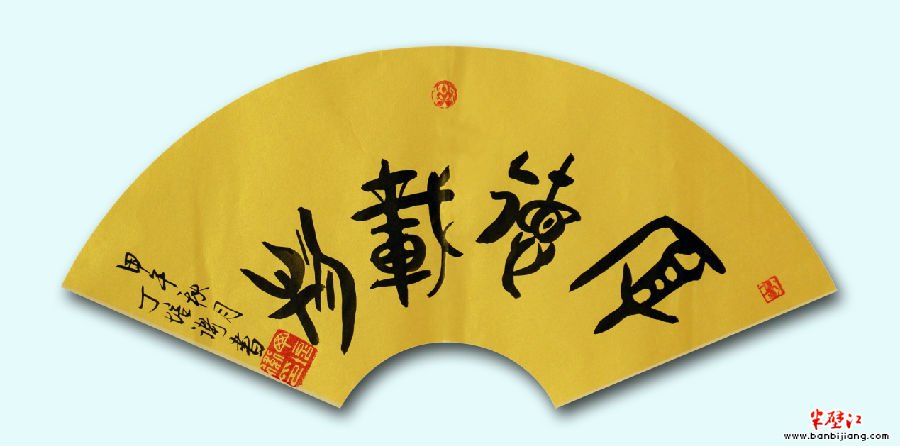 厚德載物
甲午秋月
丁浩 書
半壁江
www.banbijiang.com